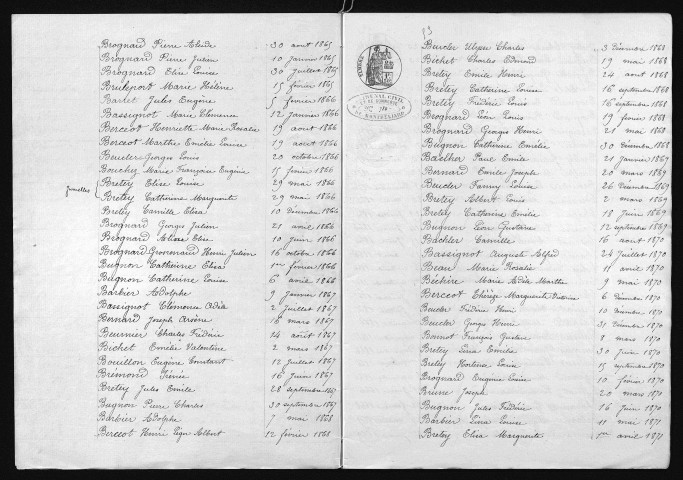 Brognard Pierre 30 août 1865
Brognard Pierre Julien 10 Janvier 1865
Brognard Elise Louise 30 Juillet 1865
Marie Hélène 15 février 1865
Barlet Jules Eugène 5 février 1866
Bassignot Marie Clémence 12 Janvier 1866
Berceot Henriette Marie Rosalie 19 août 1866
Berceot Marthe Emélie Louise 19 août 1866
Georges Louis 20 octobre 1866
Bouchez Marie Françoise Eugénie 15 février 1866
Jumelles
Bretey Elise Louise 29 mai 1866
Bretey Catherine Marguerite 29 mai 1866
Bretey Camille Elisa 10 décembre 1866
Brognard Georges Julien 21 août 1866
Brognard Elise 10 Juin 1866
Brognard-Grosrenaud Henri Julien 16 octobre 1866
Bugnon Catherine Elisa 1er février 1866
Bugnon Catherine Louise 6 avril 1866
Barbier Adolphe 9 Janvier 1867
Bassignot Clémence Adèle 2 Juillet 1867
Bernard Joseph Arsène 16 mars 1867
Beurnier Charles Frédéric 24 août 1867
Bichet Emélie Valentine 2 mars 1867
Bouillon Eugène Constant 12 Juillet 1867
Brémond 16 Juin 1867
Bretey Jules Emile 28 septembre 1867
Bugnon Pierre Charles 30 septembre 1867
Barbier Adolphe 7 mai 1868
Berceot Henri Albert 12 février 1868
13
TRIBUNAL CIVIL
DE MONTBÉLIARD
Beucler Ulysse Charles 3 décembre 1868
Bichet Charles Edmond 19 mai 1868
Bretey Emile Henri 24 août 1868
Bretey Catherine Louise 16 septembre 1868
Bretey Frédéric Louis 16 septembre 1868
Brognard Léon Louis 19 février 1868
Brognard Georges Henri 21 mai 1868
Bugnon Catherine Emélie 30 décembre 1868
Paul Emile 21 Janvier 1869
Bernard Emile Joseph 20 mars 1869
Beucler Fanny Louise 26 décembre 1869
Bretey Albert Louis 2 mars 1869
Bretey Catherine Emélie 18 Juin 1869
Bugnon Léon Gustave 12 septembre 1869
Bächler Camille 16 août 1870
Bassignot Auguste Alfred 24 Juillet 1870
Beau Marie Rosalie 11 avril 1870
Marie Adèle Marthe 9 mai 1870
Berceot Thérèse Marguerite 6 décembre 1870
Beucler Frédéric Henri 10 décembre 1870
Beucler Georges Henri 31 décembre 1870
Bonnot François Gustave 8 mars 1870
Bretey Emélie 30 Juin 1870
Bretey Hortense Louise 15 septembre 1870
Brognard Eugénie Louise 10 février 1870
Brune Joseph 20 mars 1870
Bugnon Jules Frédéric 16 Juin 1870
Barbier Lina Louise 11 mai 1871
Bretey Elisa Marguerite 1er avril 1871